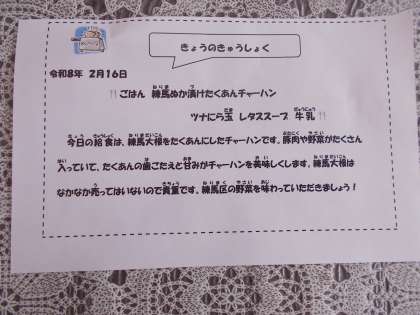 きょうのきゅうしょく
令和8年 2月16日
ごはん 練馬ぬか漬けたくあんチャーハン
ツナにら玉 レタススープ 牛乳
今日の給食は、練馬大根をたくあんにしたチャーハンです。豚肉や野菜がたくさん
入っていて、たくあんの歯ごたえと甘みがチャーハンを美味しくします。練馬大根は
なかなか売ってはいないので貴重です。練馬区の野菜を味わっていただきましょう！